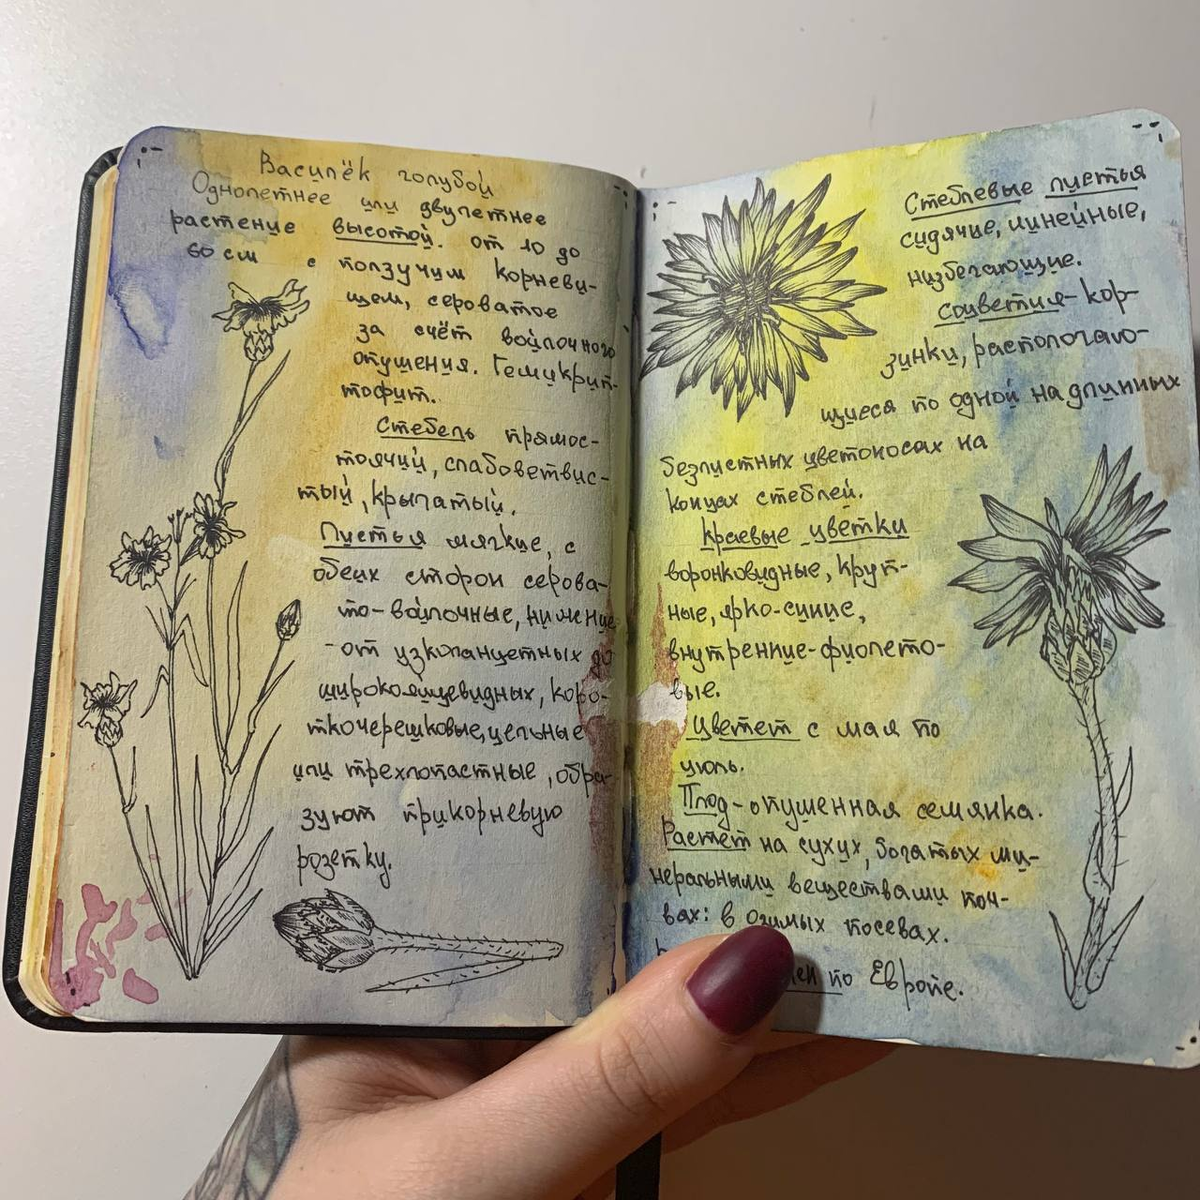 Василёк голубой
Однолетнее или двулетнее
растение высотой. от 10 до
60 см с ползучим корневи-
щем, сероватое
за счёт войлочного
опушения. Гемикрип-
тофит.
Стебель прямос-
тоячий, слабоветвис-
тый, крылатый.
Листья мягкие, с
обеих сторон серова-
то-войлочные, нижние
-от узколанцетных до
широкояйцевидных, коро-
ткочерешковые, цельные
или трехлопастные, обра-
зуют прикорневую
розетку.
Стеблевые листья
сидячие, линейные,
низбегающие.
Соцветия-кор-
зинки, располагаю-
щиеся по одной на длинных
безлистных цветоносах на
концах стеблей.
Краевые цветки
воронковидные, круп-
ные, ярко-синие,
внутренние-фиолето-
вые.
Цветет с мая по
июль.
Плод-опушенная семянка.
Растет на сухих, богатых ми-
неральными веществами поч-
вах: в озимых посевах.
по Европе.